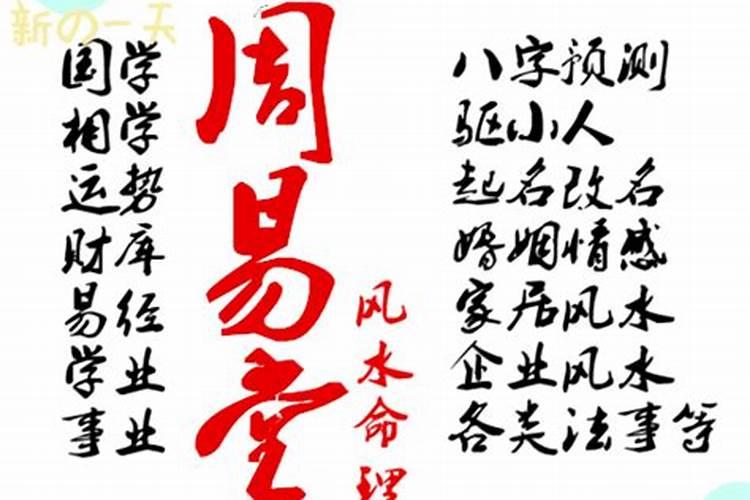 新の一天
国学
相学
运势
财库
易经
学业
事业
周易堂
风水命理
八字预测
驱小人
起名改名
婚姻情感
家居风水
企业风水
各类法事等